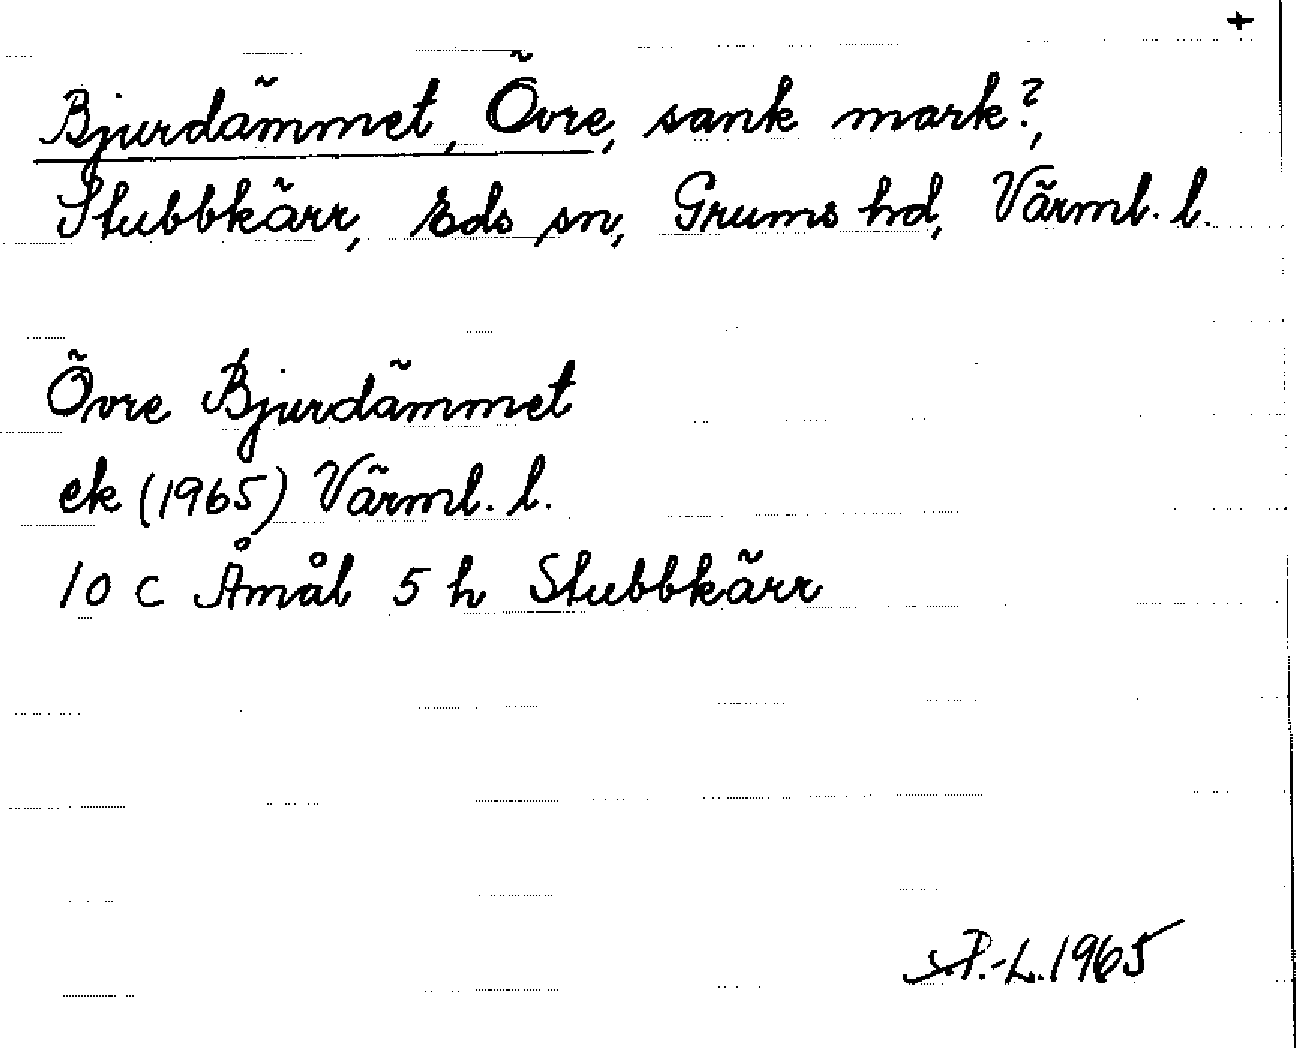 +
Bjurdämmet, Övre, sank mark?,
Stubbkärr, Eds sn, Grums hd, Värml. l.
Övre Bjurdämmet
ek (1965) Värml. l.
10 C Åmål 5 h Stubbkärr
S.P.-L. 1965